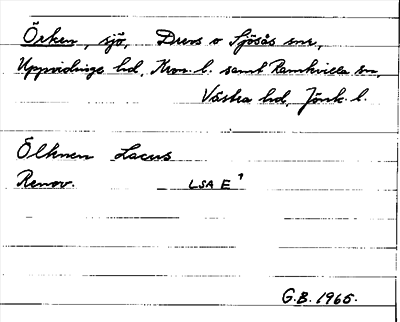 Örken, sjö, Drevs o Sjösås snr,
Uppvidinge hd, Kron. l. samt Ramkvilla sn,
Västra hd, Jönk. l.
Ölknen Lacus
Renov. LSA E¹
G.B. 1965.